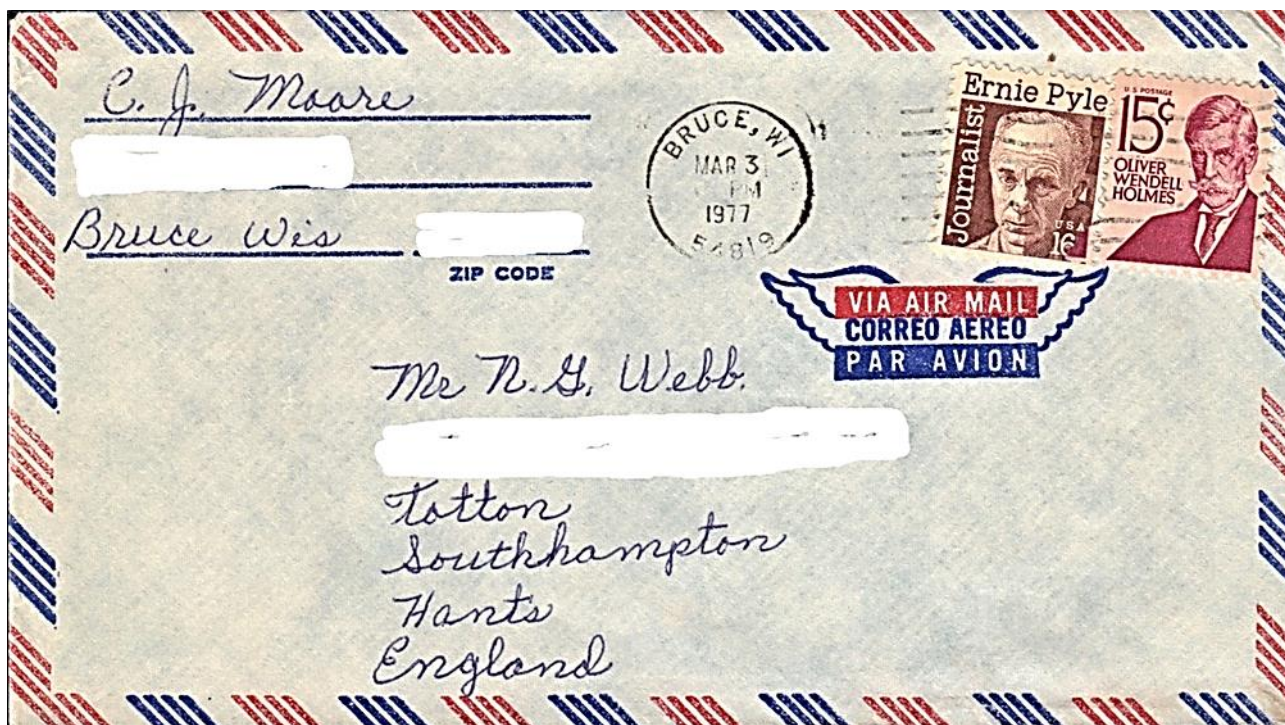 C. J. Moore
Bruce Wis
ZIP CODE
BRUCE, WI
MAR 3
PM
1977
54819
Ernie Pyle
Journalist
USA
16
U.S. POSTAGE
15¢
OLIVER
WENDELL
HOLMES
VIA AIR MAIL
CORREO AEREO
PAR AVION
Mr N. G. Webb.
Totton
Southhampton
Hants
England